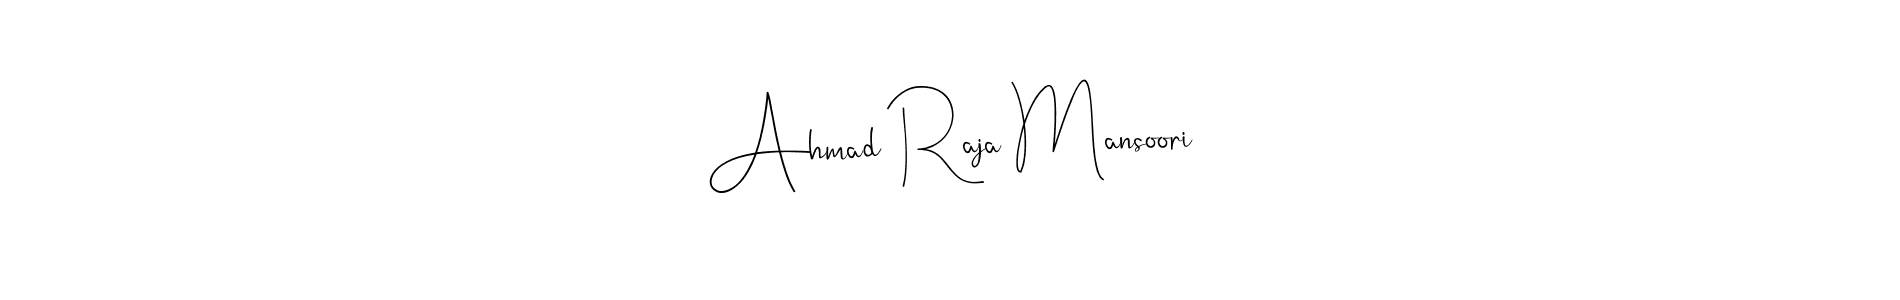 Ahmad Raja Mansoori